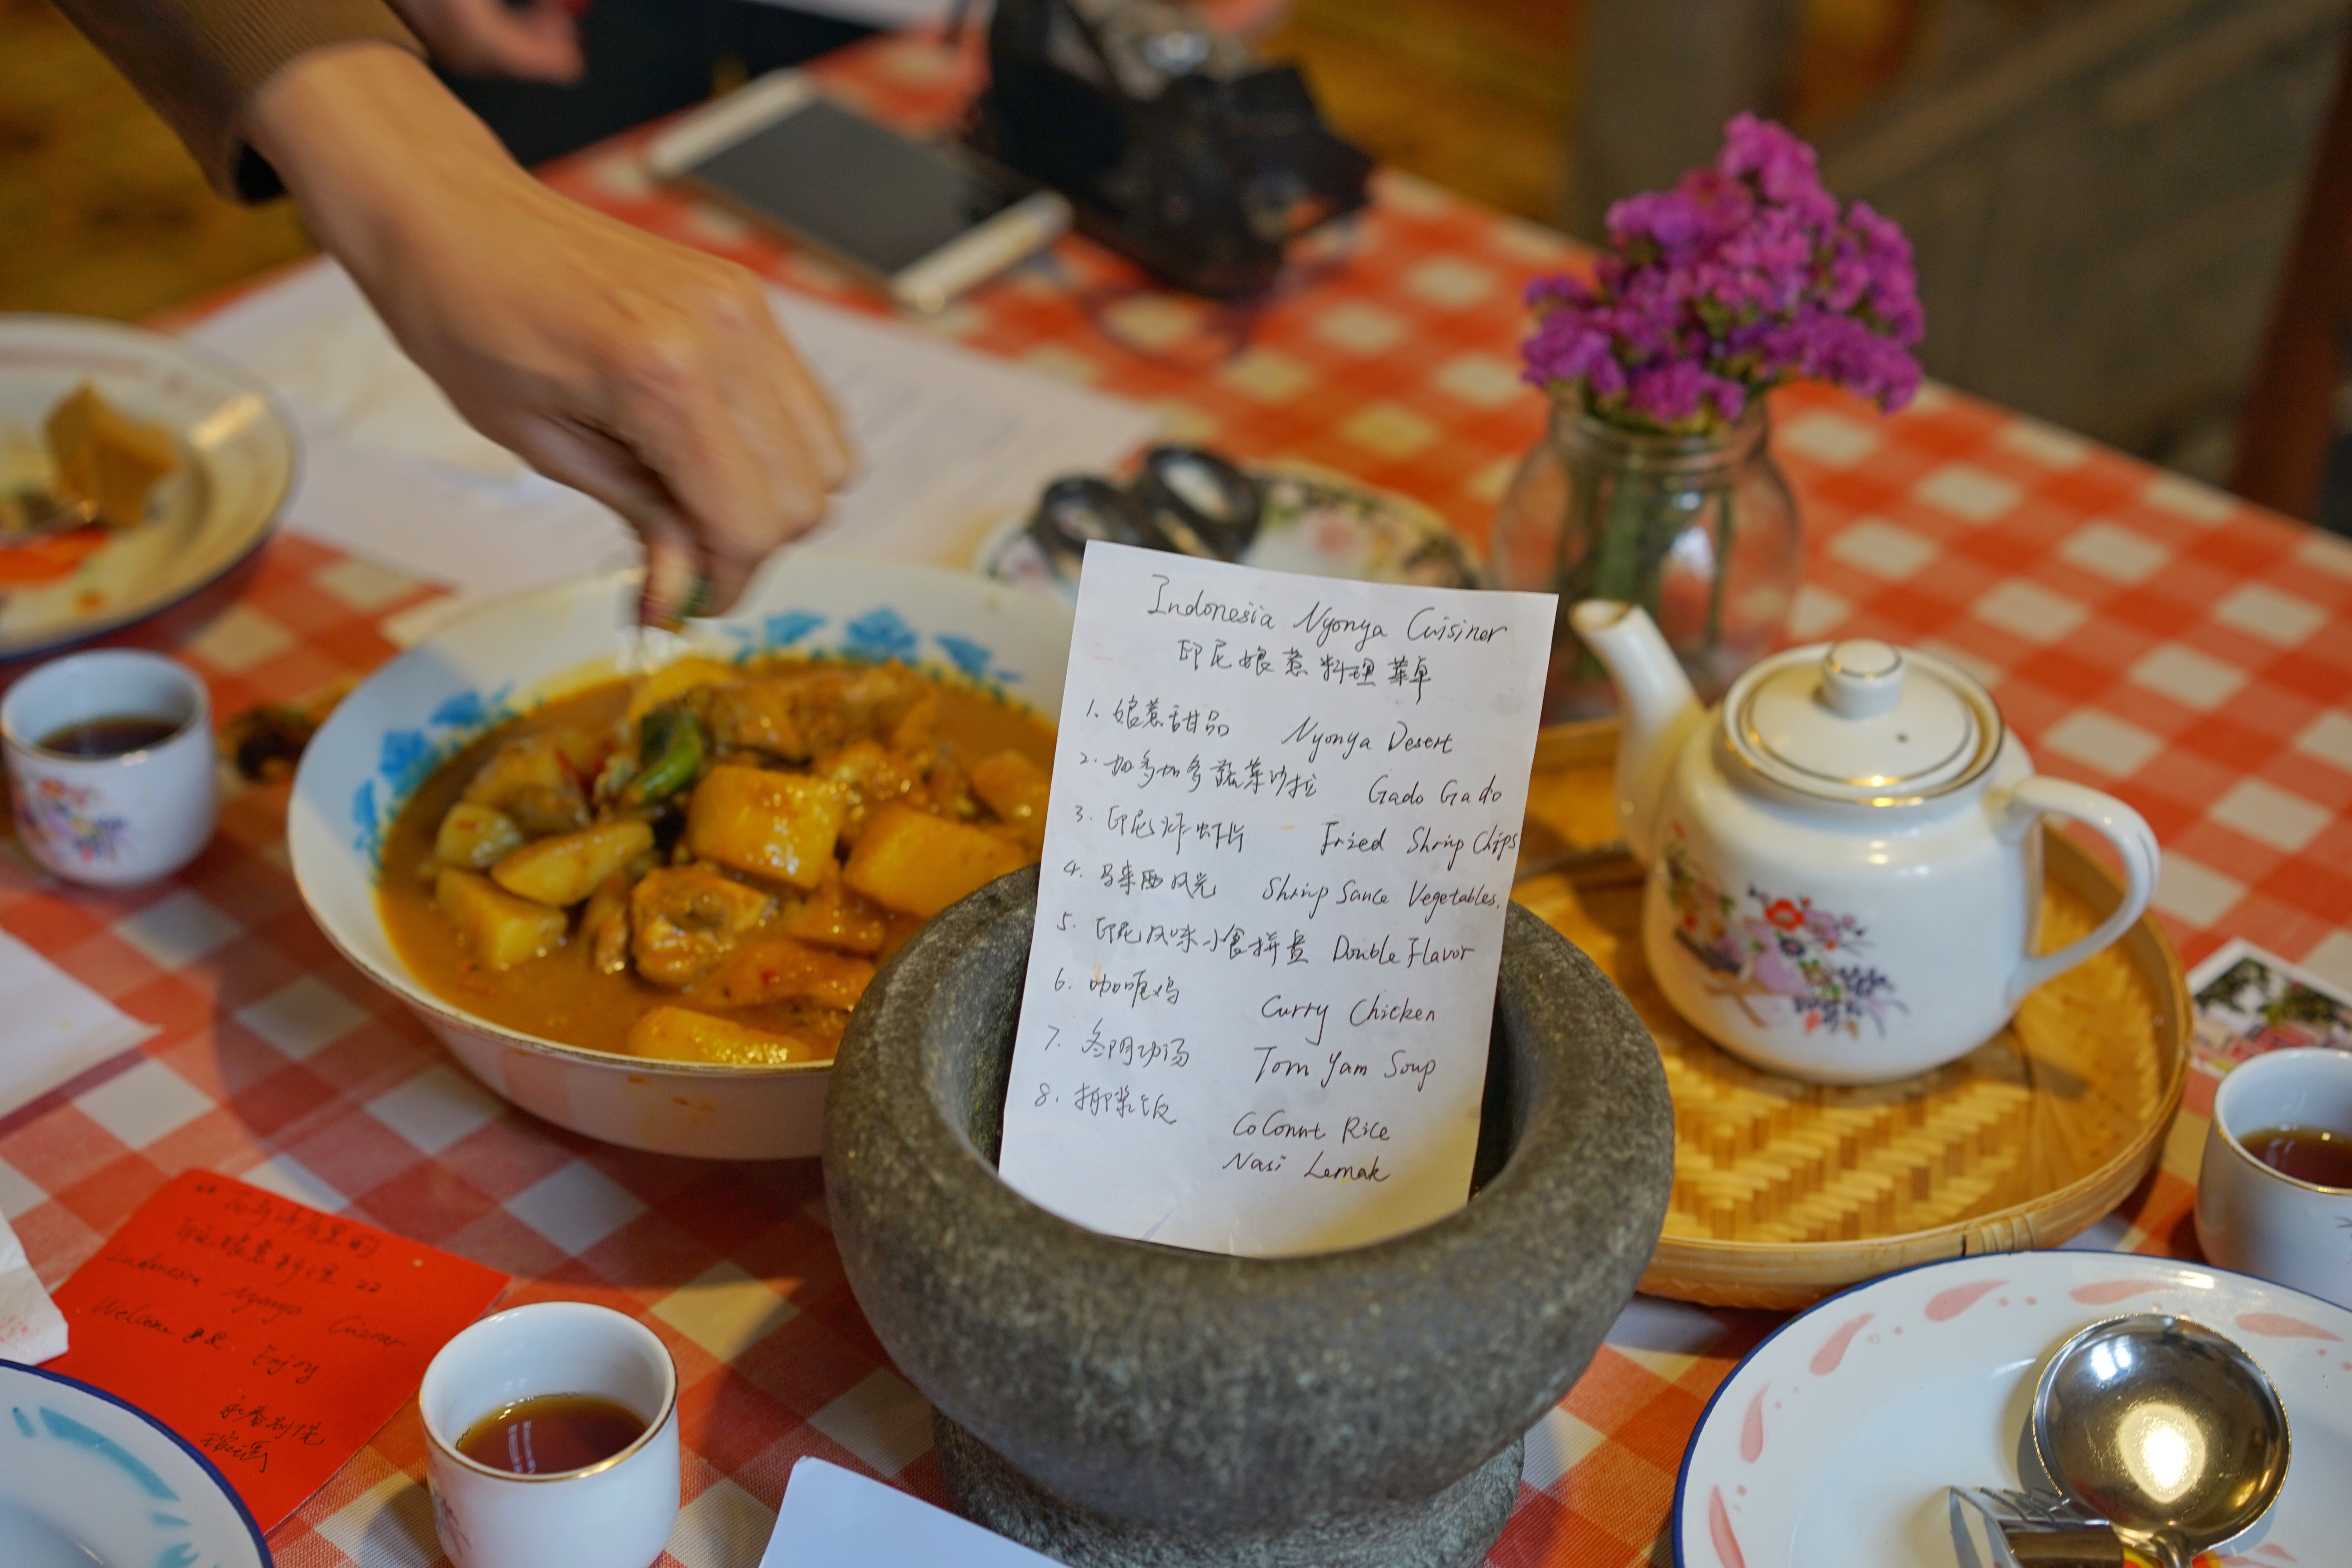 Indonesia Nyonya Cuisiner
印尼娘惹料理菜单
1. 娘惹甜品 Nyonya Desert
2. 加多加多蔬菜沙拉 Gado Gado
3. 印尼炸虾片 Fried Shrinp Chips
4. 马来西风光 Shrinp Sauce Vegetables.
5. 印尼风味小食拼盘 Double Flavor
6. 咖喱鸡 Curry Chicken
7. 冬阴功汤 Tom Yam Soup
8. 椰浆饭 CoConut Rice
Nasi Lemak
印尼娘惹料理
Indonesia Nyonya
Welcome Enjoy